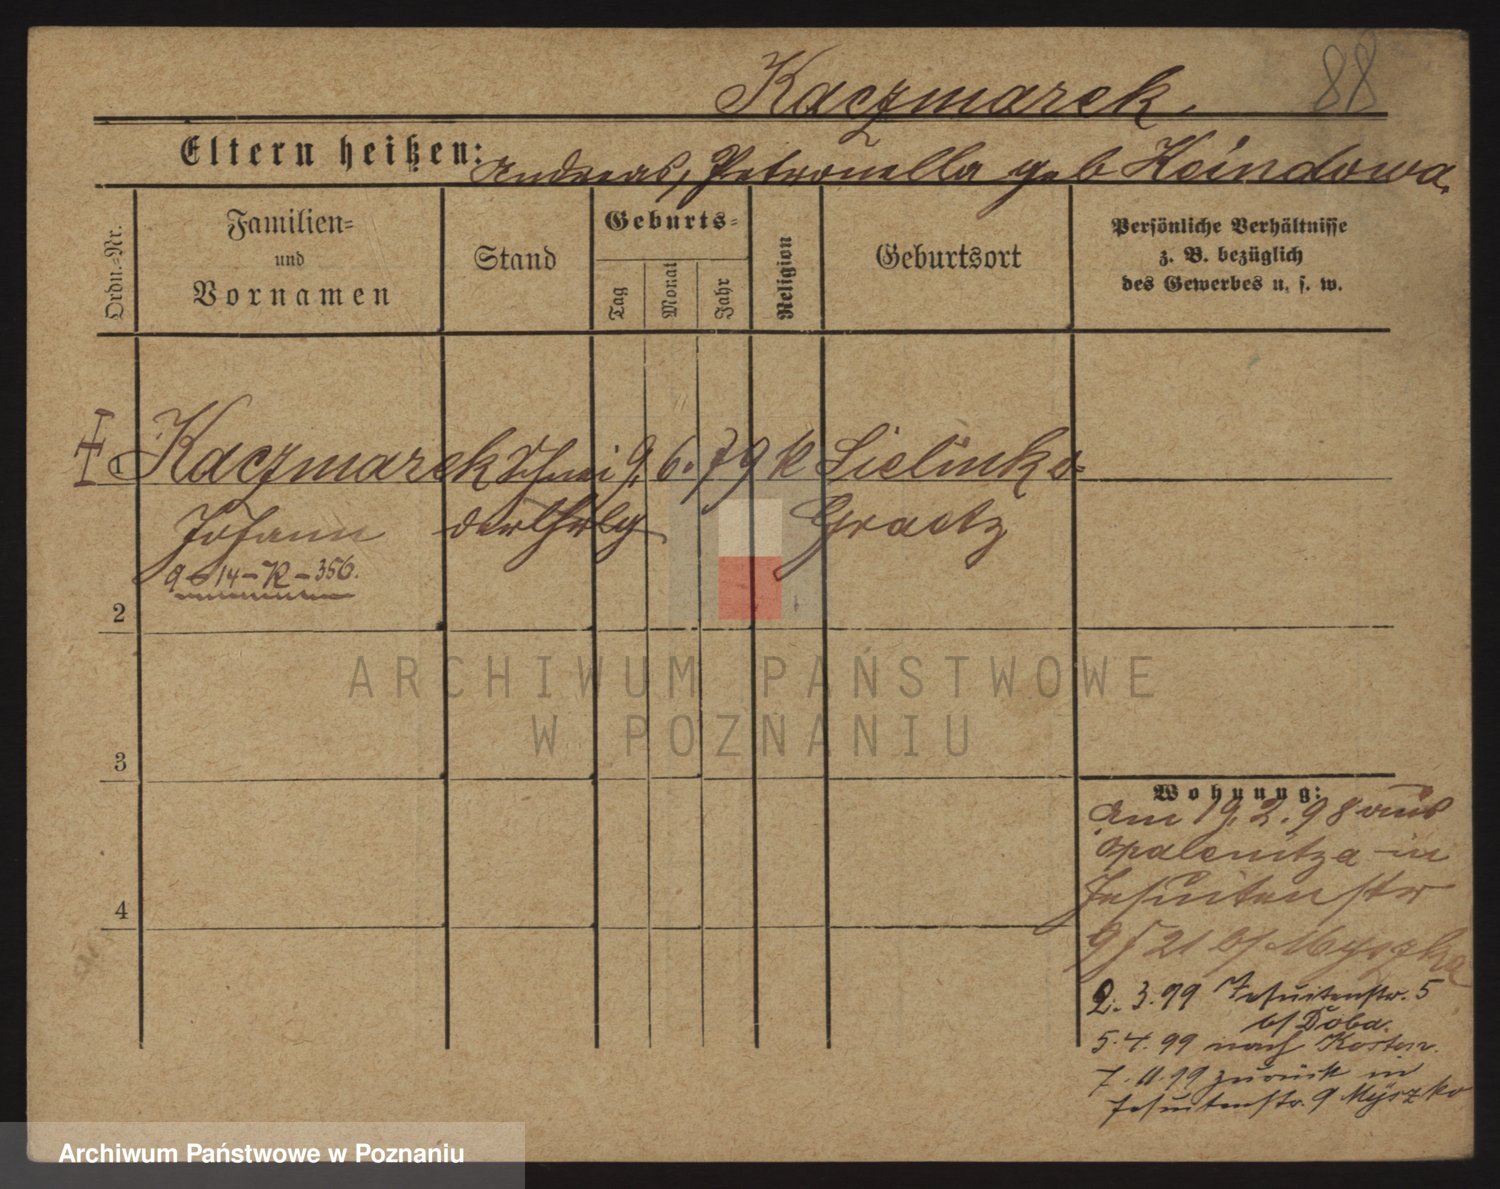 Kaczmarek
88
Eltern heißen: Andreas, Petronella geb
Ordn.=Nr.
Familien=
und
Vornamen
Stand
Geburts=
Tag
Monat
Jahr
Religion
Geburtsort
Persönliche Verhältnisse
z. B. bezüglich
des Gewerbes u. s. w.
1 Kaczmarek Schnei 9. 6. 79 k Sielinko
Johann derlhrlg Graetz
9-14-K-356.
2
3
4
Wohnung:
am 19.2.98 aus
Opalenitza in
Jesuitenstr
9 21 b/ Myszka
2.3.99 Jesuitenstr. 5
b/ Doba.
5.4.99 nach Kosten.
7.11.99 zurück in
Jesuitenstr. 9 Myszko
ARCHIWUM PAŃSTWOWE
W POZNANIU
Archiwum Państwowe w Poznaniu